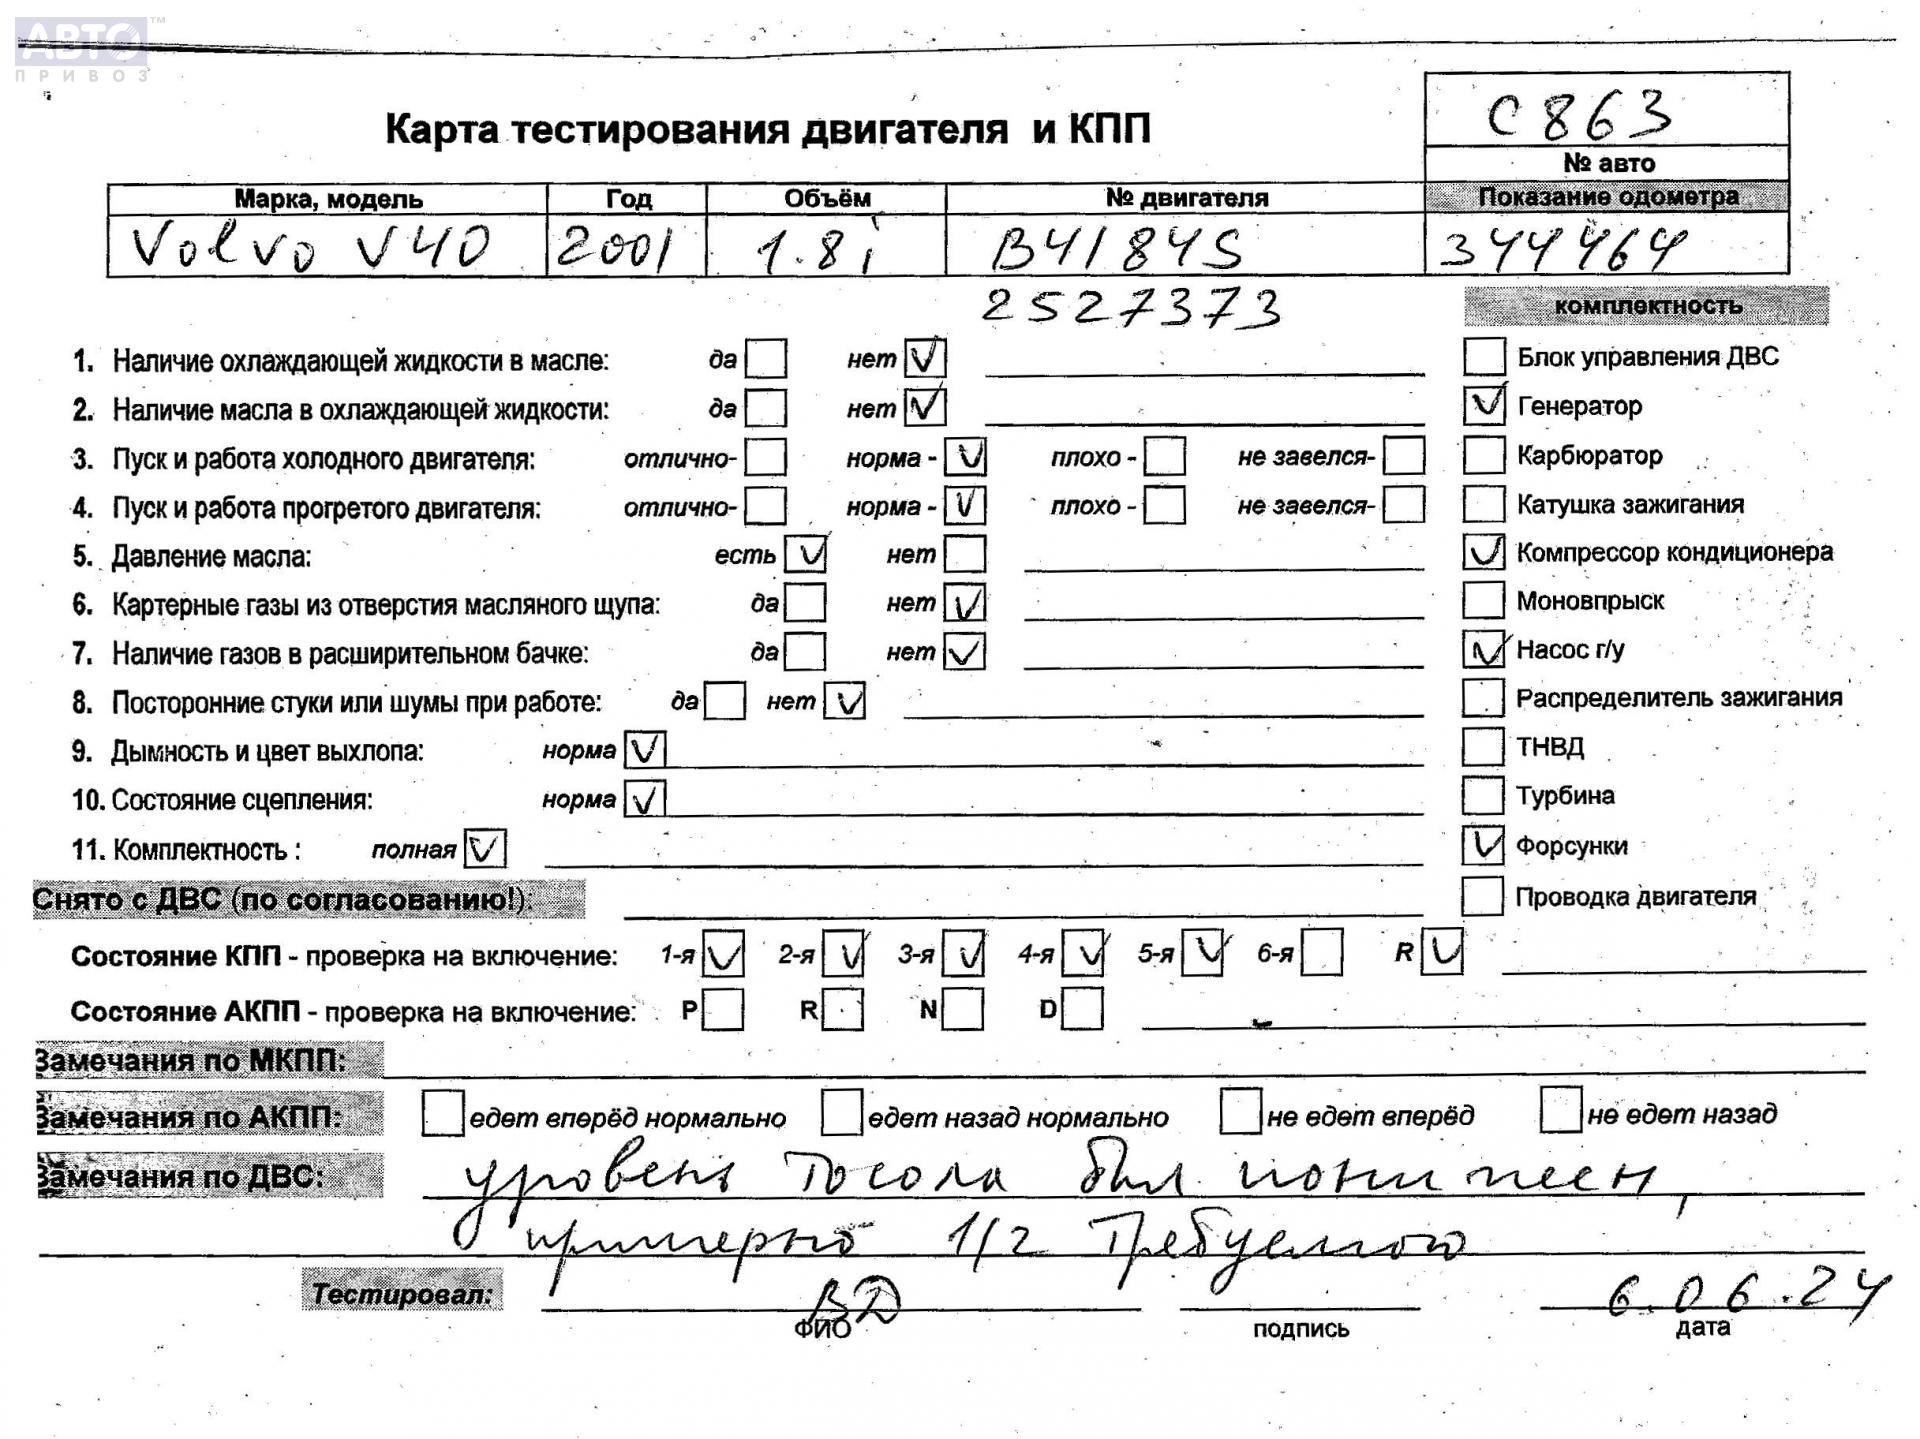 АВТО™
ПРИВОЗ
С863
Карта тестирования двигателя и КПП
№ авто
Марка, модель Год Объём № двигателя Показание одометра
Volvo V40 2001 1.8i B4184S 344464
2527373
комплектность
1. Наличие охлаждающей жидкости в масле: да нет Блок управления ДВС
2. Наличие масла в охлаждающей жидкости: да нет Генератор
3. Пуск и работа холодного двигателя: отлично- норма - плохо - не завелся- Карбюратор
4. Пуск и работа прогретого двигателя: отлично- норма - плохо - не завелся- Катушка зажигания
5. Давление масла: есть нет Компрессор кондиционера
6. Картерные газы из отверстия масляного щупа: да нет Моновпрыск
7. Наличие газов в расширительном бачке: да нет Насос г/у
8. Посторонние стуки или шумы при работе: да нет Распределитель зажигания
9. Дымность и цвет выхлопа: норма ТНВД
10. Состояние сцепления: норма Турбина
11. Комплектность : полная Форсунки
Снято с ДВС (по согласованию!): Проводка двигателя
Состояние КПП - проверка на включение: 1-я 2-я 3-я 4-я 5-я 6-я R
Состояние АКПП - проверка на включение: P R N D
Замечания по МКПП:
Замечания по АКПП: едет вперёд нормально едет назад нормально не едет вперёд не едет назад
Замечания по ДВС: уровень тосола был понижеен,
примерно 1/2 требуемого
Тестировал: ВД 6.06.24
ФИО подпись дата